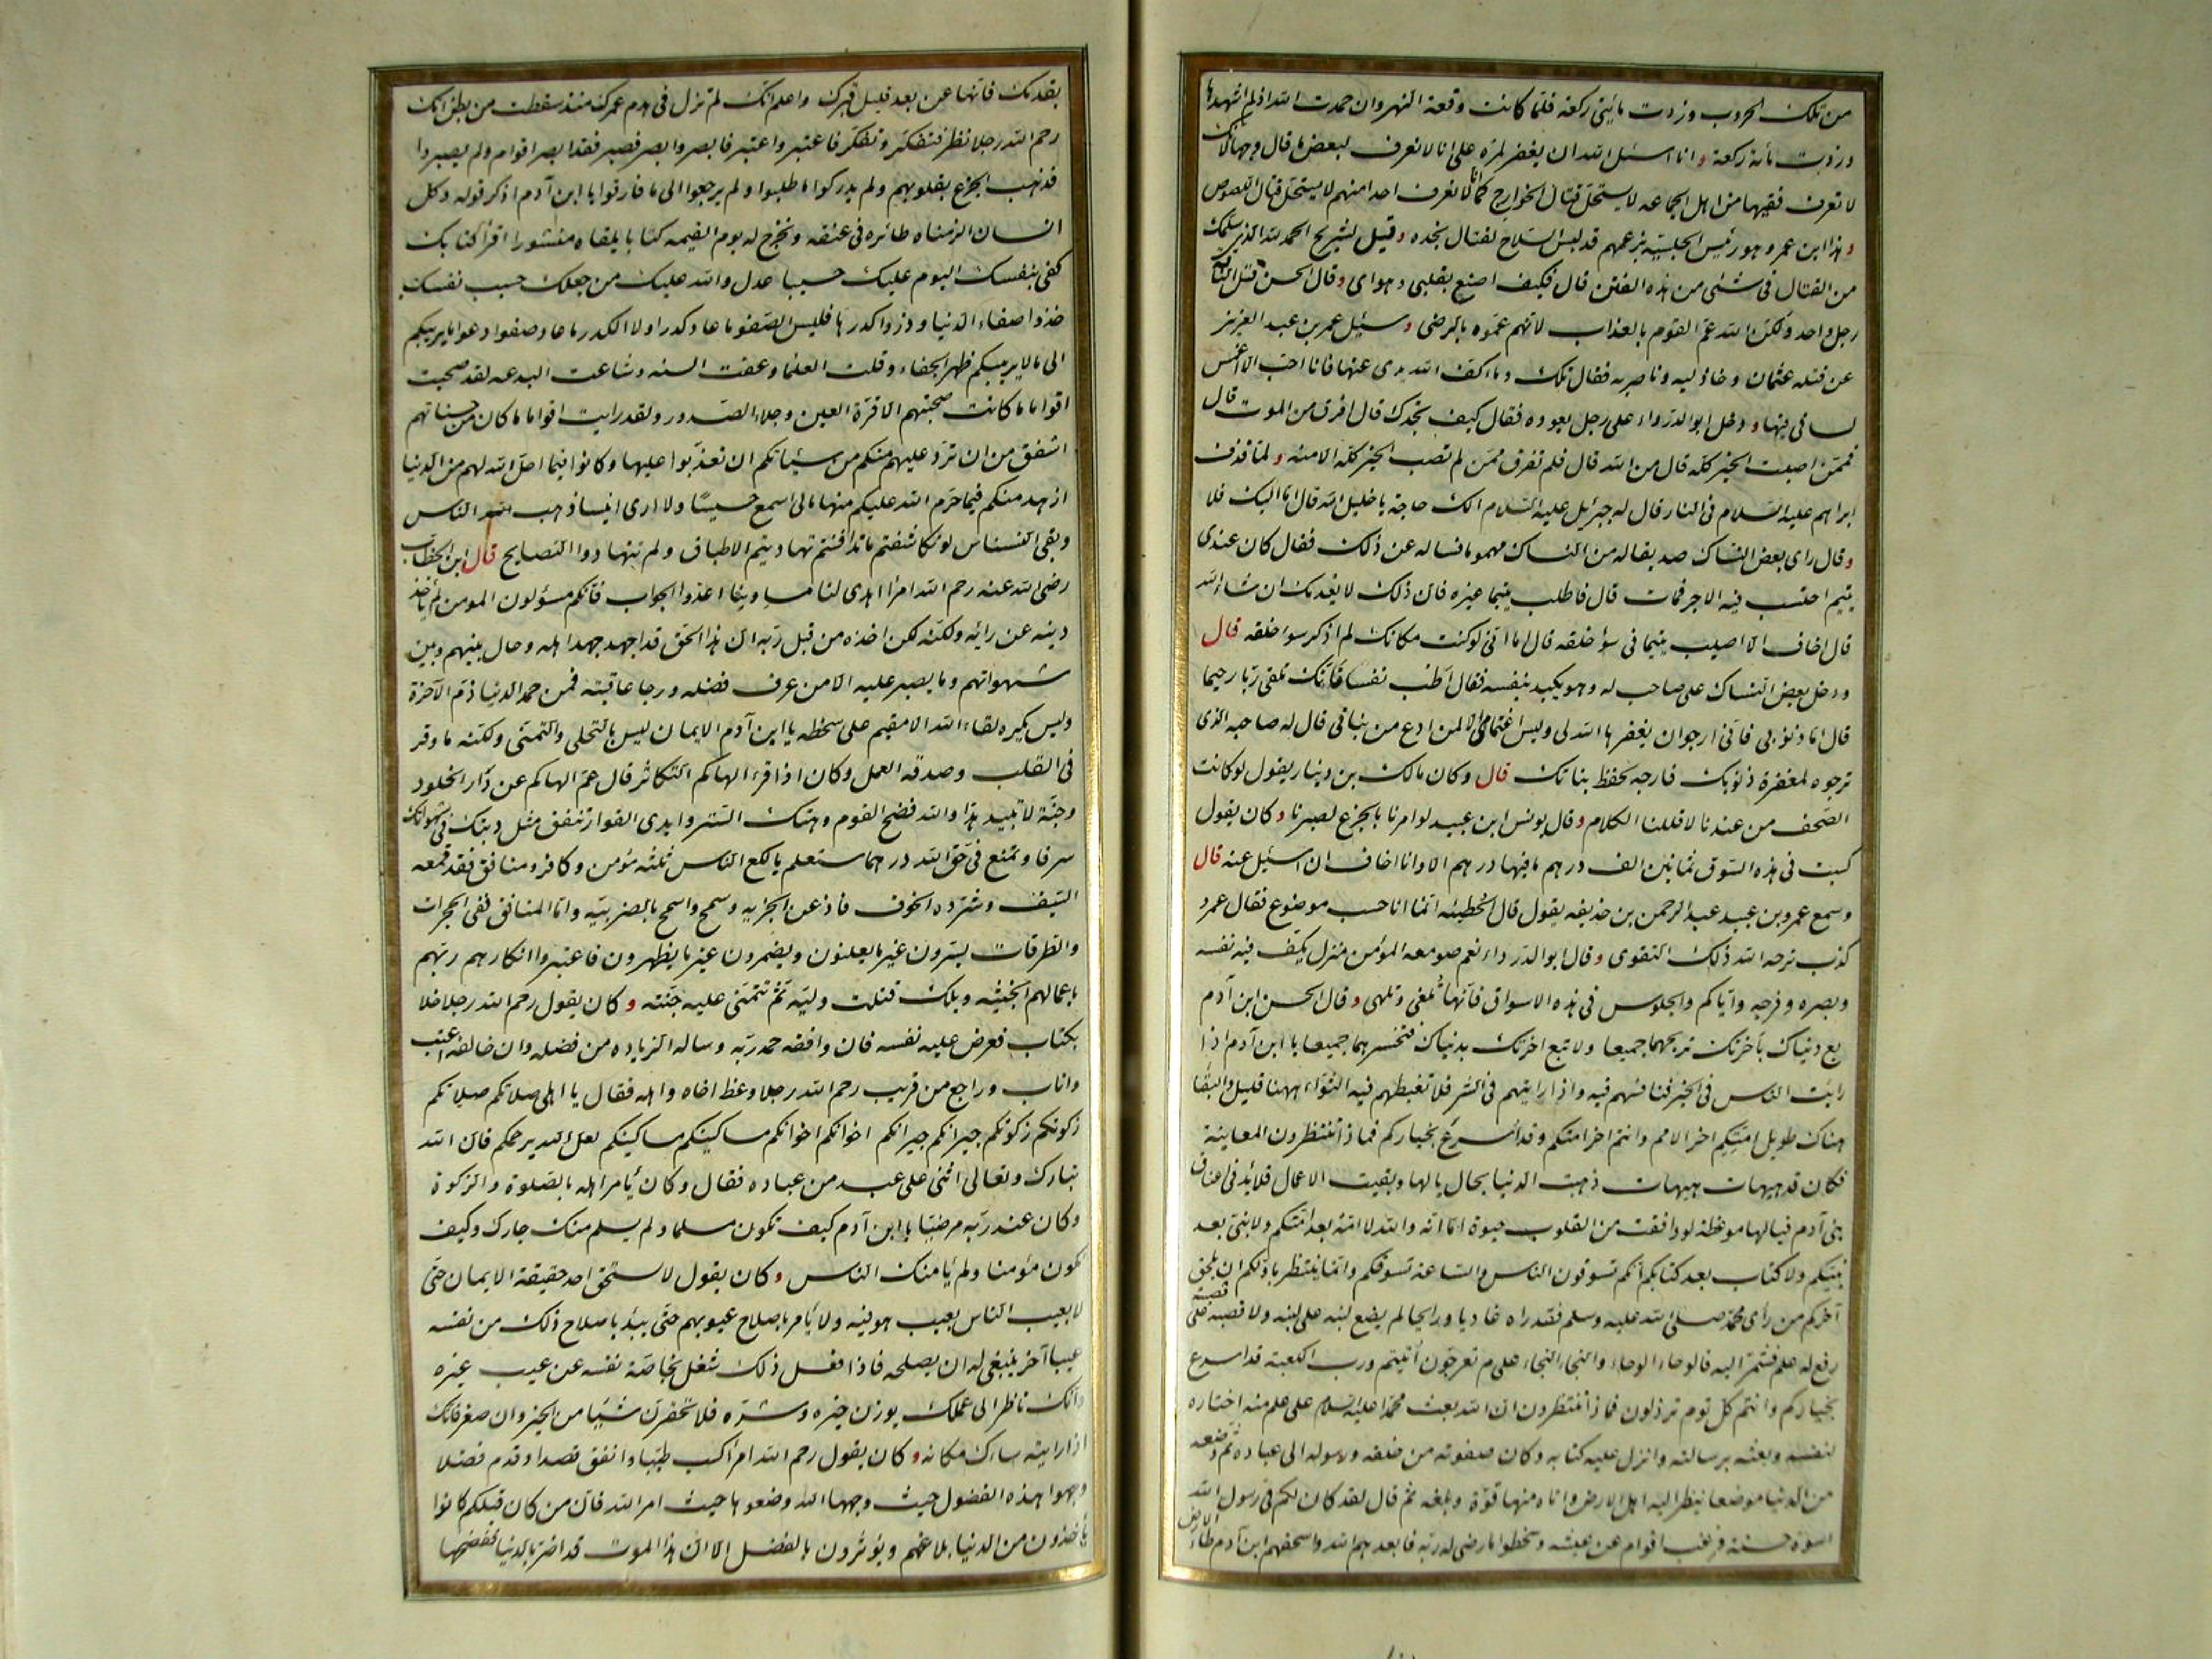 من تلك الحروب وزدت مائتي ركعة فلما كانت وقعة النهروان حمدت الله اذ لم اشهدها
وزدت مائة ركعة وانا اسئل الله ان يغفر لمرة على انا لا نعرف لبعض ما قال وجها لانك
لا تعرف فقيها من اهل الجماعه لا يستحل قتال الخوارج كما انا لا نعرف احدا منهم لا يستحل قتال اللصوص
وهذا ابن عمر وهو رئيس الحلسية بزعمهم قد لبس السلاح لقتال نجده وقيل لشريح الحمد لله الذي سلمك
من القتال في شئ من هذه الفتن قال فكيف اصنع بقلبي وهواي وقال الحسن قتل الناقة
رجل واحد ولكن الله عم القوم بالعذاب لانهم عموه بالرضى وسئل عمر بن عبد العزيز
عن قتله عثمان وخاذليه وناصريه فقال تلك دماء كف الله يدى عنها فانا احب الا اغمس
لساني فيها ودخل ابو الدرداء على رجل يعوده فقال كيف تجدك قال افرق من الموت قال
فممن اصبت الخير كله قال من الله قال فلم تفرق ممن لم تصب الخير كله الا منه ولما قذف
ابراهم عليه السلام في النار قال له جبرئيل عليه السلام الك حاجة يا خليل الله قال اما اليك فلا
وقال راى بعض النساك صديقا له من النساك مهموما فساله عن ذلك فقال كان عندي
يتيم احتسب فيه الاجر فمات قال فاطلب يتيما غيره فان ذلك لا يعدمك ان شاء الله
قال اخاف الا اصيب يتيما في سؤ خلقه قال اما انى لو كنت مكانك لم اذكر سوء خلقه قال
ودخل بعض النساك على صاحب له وهو يكيد بنفسه فقال اطب نفسا فانك تلقى ربا رحيما
قال اما ذنوبى فانى ارجو ان يغفرها الله لى وليس اغتمامى الا لمن ادع من بناتي قال له صاحبه الذى
ترجوه لمغفرة ذنوبك فارجه لحفظ بناتك قال وكان مالك بن دينار يقول لو كانت
الصحف من عندنا لاقللنا الكلام وقال يونس ابن عبيد لو امرنا بالجزع لصبرنا وكان يقول
كسبت في هذه السوق ثمانين الف درهم ما فيها درهم الا وانا اخاف ان اسئل عنه قال
وسمع عمرو بن عبيد عبد الرحمن بن حذيفه يقول قال الحطيئه انما انا حسب موضوع فقال عمرو
كذب ترحه الله ذلك التقوى وقال ابو الدرداء نعم صومعه المؤمن منزل يكف فيه نفسه
وبصره وفرجه واياكم والجلوس في هذه الاسواق فانها تلغى وتلهى وقال الحسن ابن آدم
بع دنياك بآخرتك تربحهما جميعا ولا تبع اخرتك بدنياك فتخسرهما جميعا يا ابن آدم اذا
رايت الناس في الخير فنافسهم فيه واذا رايتهم في الشر فلا تغبطهم فيه الثواء ههنا قليل والبقاء
هناك طويل امتكم اخر الامم وانتم اخر امتكم وقد اسرع بخياركم فماذا تنتظرون المعاينة
فكان قد هيهات هيهات ذهبت الدنيا بحال بالها وبقيت الاعمال قلائد في اعناق
بنى آدم فيا لها موعظة لو وافقت من القلوب حيوة اما انه والله لا امة بعد امتكم ولا نبي بعد
نبيكم ولا كتاب بعد كتابكم انكم تسوقون الناس والساعة تسوقكم وانما ينتظر باولكم ان يلحق
آخركم من رأى محمد صلى الله عليه وسلم فقد راه غاديا ورايحا لم يضع لبنه على لبنه ولا قصبه على قصبة
رفع له علم فشمر اليه فالوحاء الوحاء والنجاء النجاء على م تعرجون اتيتم ورب الكعبة قد اسرع
بخياركم وانتم كل يوم ترذلون فماذا تنتظرون ان الله بعث محمدا عليه السلام على علم منه اختاره
لنفسه وبعثه برسالته وانزل عليه كتابه وكان صفوته من خلقه ورسوله الى عباده ثم وضعه
من الدنيا موضعا ينظر اليه اهل الارض واتاه منها قوة وبلغة ثم قال لقد كان لكم في رسول الله
اسوة حسنة فرغب اقوام عن عيشه وسخطوا ما رضى له ربه فابعدهم الله واسحقهم ابن آدم طأ الارض
بقدمك فانها عن بعد قليل قبرك واعلم انك لم تزل في هدم عمرك منذ سقطت من بطن امك
رحم الله رجلا نظر فتفكر وتفكر فاعتبر واعتبر فابصر وابصر فصبر فقد ابصر اقوام ولم يصبروا
فذهب الجزع بقلوبهم ولم يدركوا ما طلبوا ولم يرجعوا الى ما فارقوا يا ابن آدم اذكر قوله وكل
انسان الزمناه طائره في عنقه ونخرج له يوم القيمه كتابا يلقاه منشورا اقرأ كتابك
كفى بنفسك اليوم عليك حسيبا عدل والله عليك من جعلك حسيب نفسك
خذوا صفاء الدنيا وذروا كدرها فليس الصفو ما عاد كدرا ولا الكدر ما عاد صفوا دعوا ما يريبكم
الى ما لا يريبكم ظهر الجفاء وقلت العلما وعفت السنه وشاعت البدعه لقد صحبت
اقواما ما كانت صحبتهم الا قرة العين وجلاء الصدور ولقد رايت اقواما ما كان من حسناتهم
اشفق من ان ترد عليهم منكم من سيئاتكم ان تعذبوا عليها وكانوا فيما احل الله لهم من الدنيا
ازهد منكم فيما حرم الله عليكم منها مالى اسمع حسيسا ولا ارى انيسا ذهب الناس
وبقى النسناس لو تكاشفتم ما تدافنتم تهاديتم الاطباق ولم تتهادوا النصايح قال ابن الخطاب
رضى الله عنه رحم الله امرا اهدى لنا مساوينا اعدوا الجواب فانكم مسؤلون المومن لم ياخذ
دينه عن رايه ولكنه لكن اخذه من قبل ربه ان هذا الحق قد اجهد جهد اهله وحال بينهم وبين
شهواتهم وما يصبر عليه الا من عرف فضله ورجا عاقبته فمن حمد الدنيا ذم الآخرة
وليس يكره لقاء الله الا مقيم على سخطه يا ابن آدم الايمان ليس بالتحلى والتمنى ولكنه ما وقر
في القلب وصدقه العمل وكان اذا قرء الهاكم التكاثر قال عم الهاكم عن دار الخلود
وجنة لا تبيد هذا والله فضح القوم وهتك الستر وابدى العوار تنفق مثل دينك في شهواتك
سرفا وتمنع في حق الله درهما ستعلم يا لكع الناس ثلثه مؤمن وكافر ومنافق فقد قمعه
السيف وشرده الخوف فاذعن بالجزيه وسمح واسمح بالضريبه واما المنافق ففى الحجرات
والطرقات يسرون غير ما يعلنون ويضمرون غير ما يظهرون فاعتبروا انكارهم ربهم
باعمالهم الخبيثه ويلك قتلت وليه ثم تتمنى عليه جنته وكان يقول رحم الله رجلا خلا
بكتاب فعرض عليه نفسه فان وافقه حمد ربه وساله الزياده من فضله وان خالفه اعتب
واناب وراجع من قريب رحم الله رجلا وعظ اخاه واهله فقال يا اهلى صلاتكم صلاتكم
زكوتكم زكوتكم جيرانكم جيرانكم اخوانكم اخوانكم مساكينكم مساكينكم لعل الله يرحمكم فان الله
تبارك وتعالى اثنى على عبد من عباده فقال وكان يأمر اهله بالصلوة والزكوة
وكان عند ربه مرضيا يا ابن آدم كيف تكون مسلما ولم يسلم منك جارك وكيف
تكون مؤمنا ولم يأمنك الناس وكان يقول لا يستحق احد حقيقة الايمان حتى
لا يعيب الناس بعيب هو فيه ولا يأمر باصلاح عيوبهم حتى يبدأ باصلاح ذلك من نفسه
عيبا آخر ينبغى له ان يصلحه فاذا فعل ذلك شغل بخاصة نفسه عن عيب غيره
وانك ناظر الى عملك يوزن خيره وشره فلا تحقرن شيئا من الخير وان صغر فانك
اذا رايته سرك مكانه وكان يقول رحم الله امرأ كسب طيبا وانفق قصدا وقدم فضلا
وجهوا هذه الفضول حيث وجهها الله وضعوها حيث امر الله فان من كان قبلكم كانوا
يأخذون من الدنيا بلاغهم ويؤثرون بالفضل الا ان هذا الموت قد اضر بالدنيا ففضحها